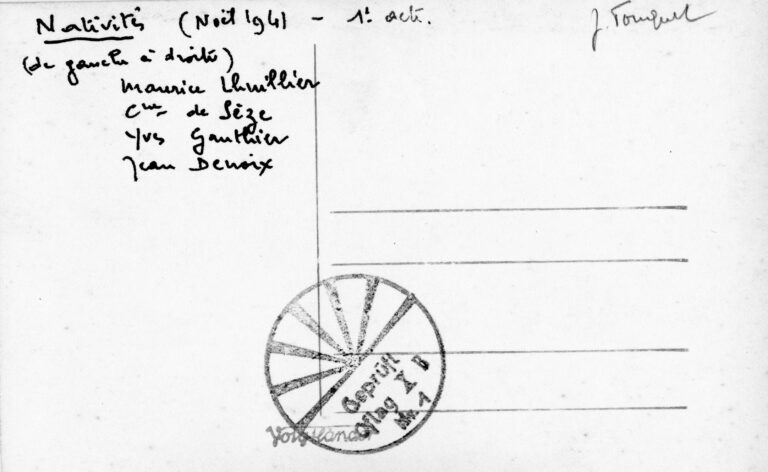 Nativités (Noël 1941 - 1: acte.
J. Touquet
(de gauche à droite)
Maurice Lhuillier
Cne de Sèze
Yves Gauthier
Jean Denoix
Geprüft
Oflag X B
Nr. 1
Voigtländer